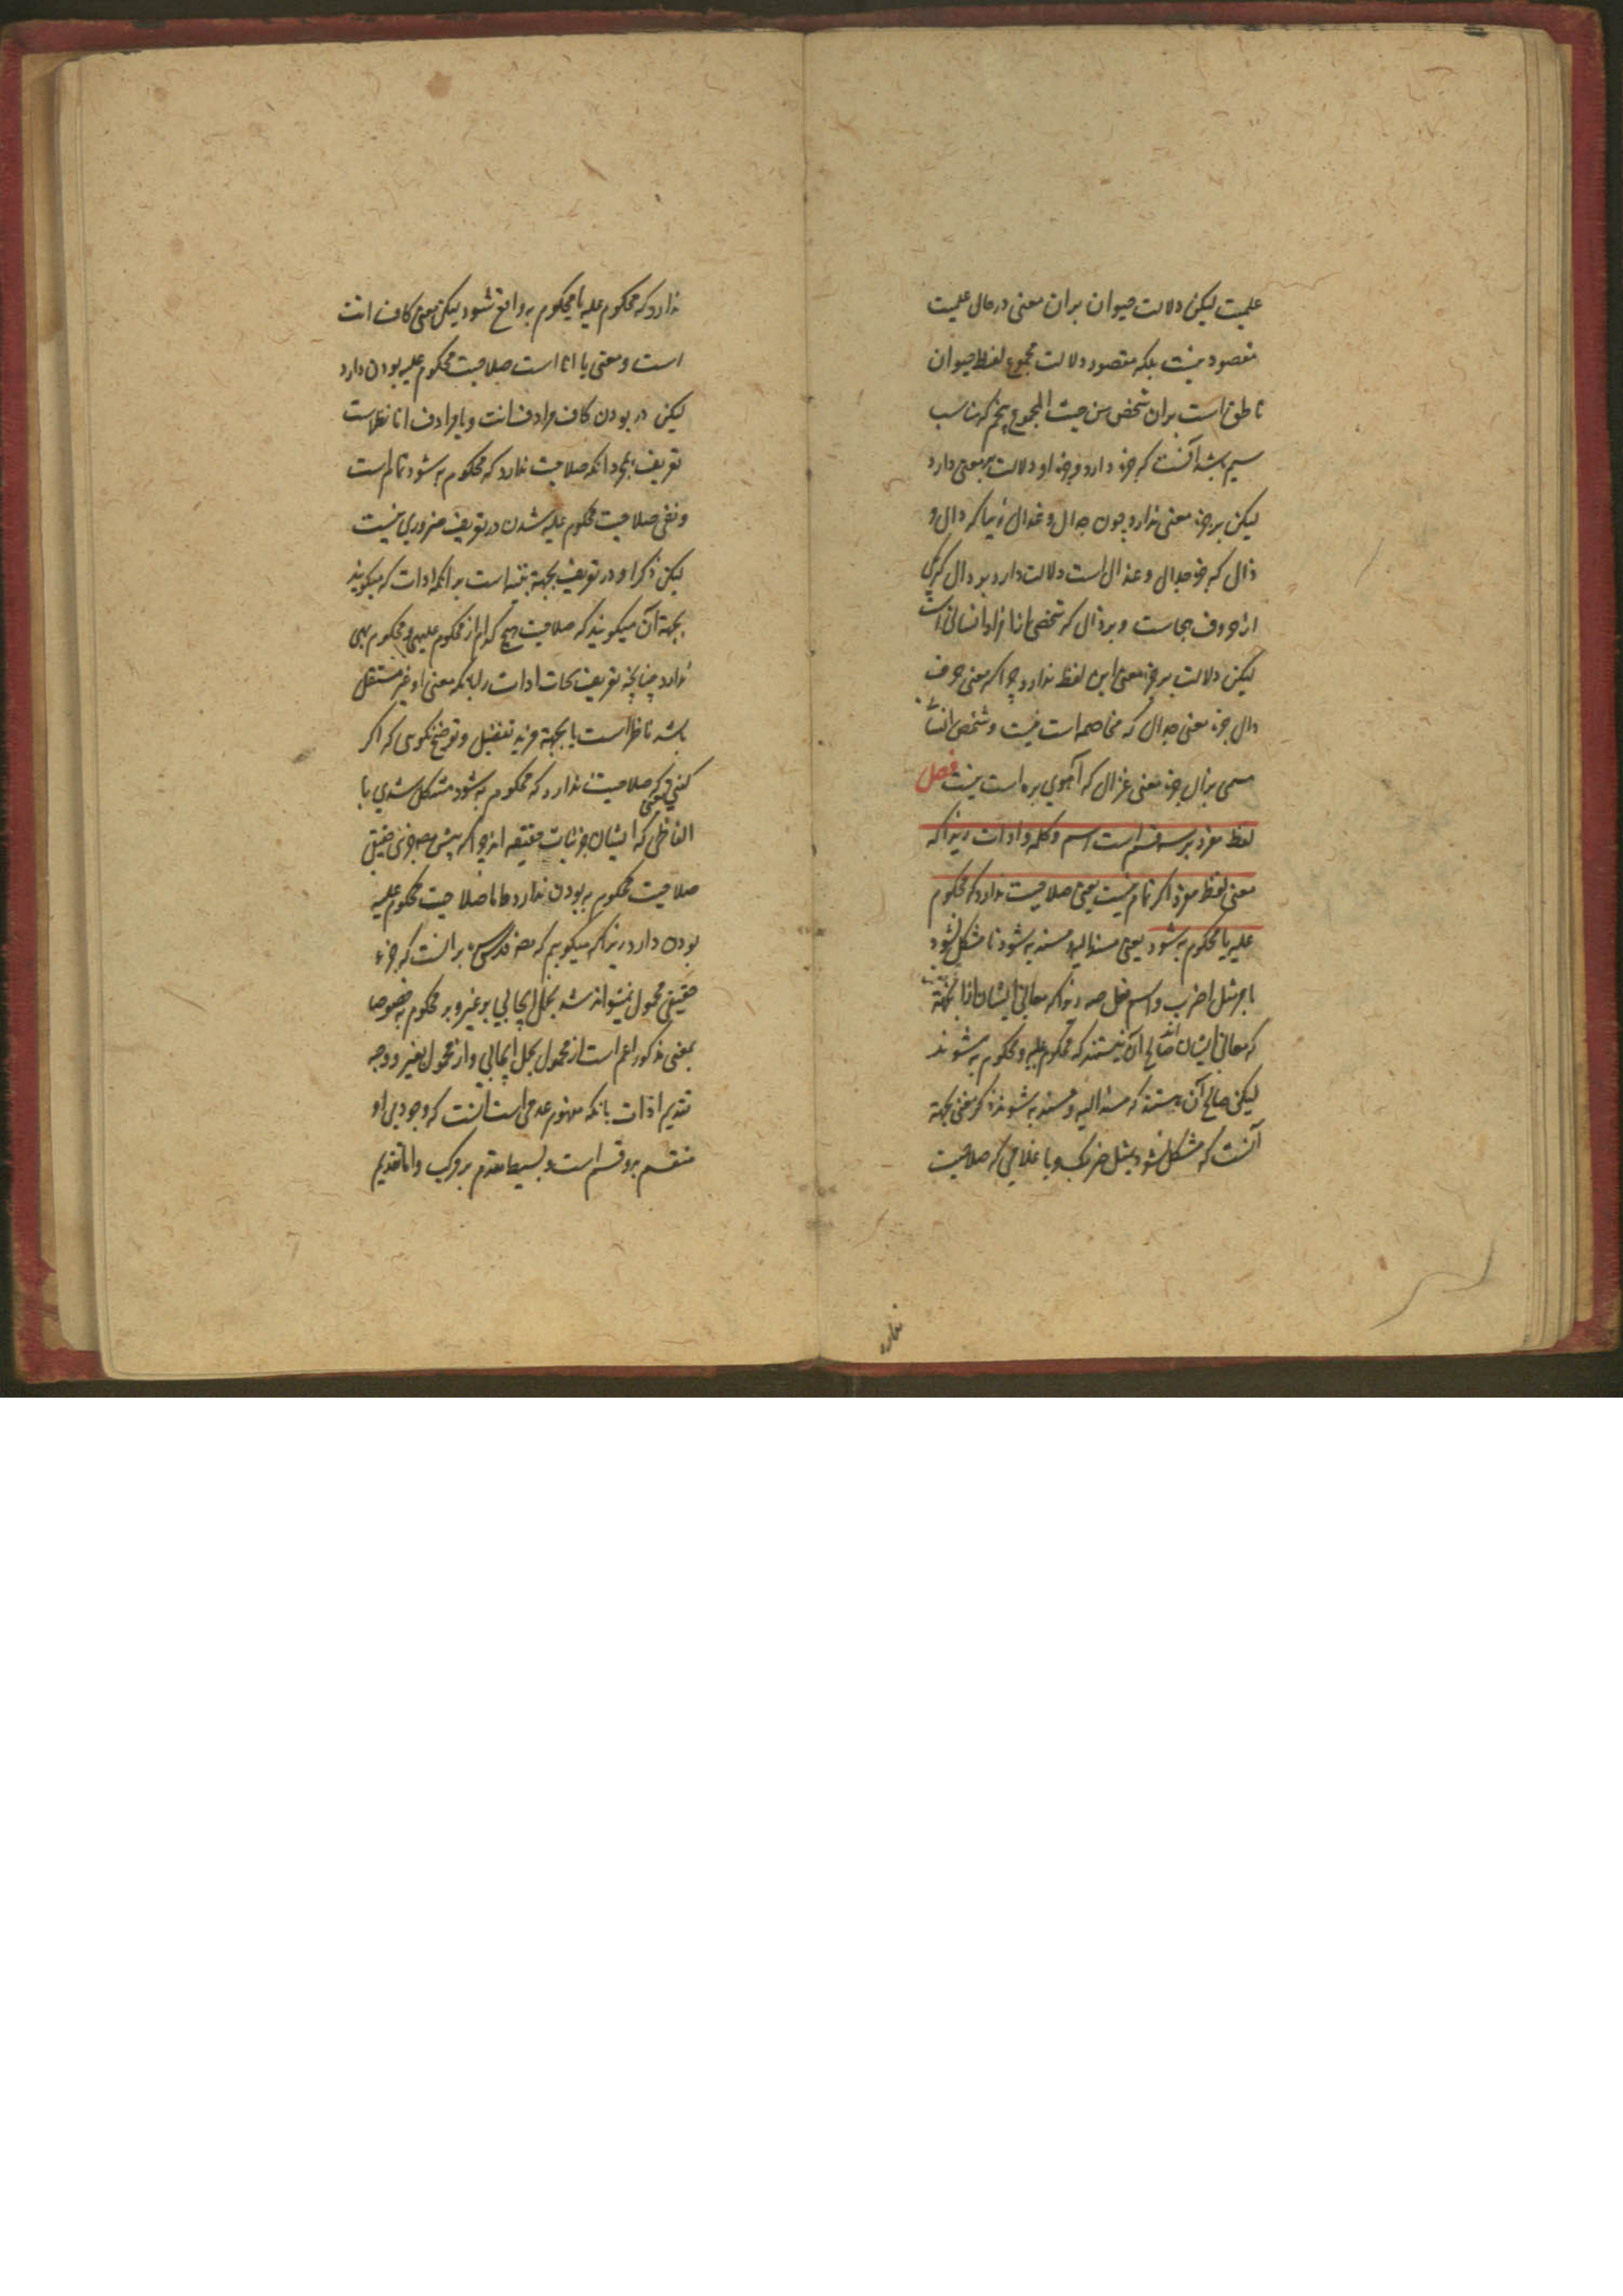 علمیت لیکن دلالت حیوان بران معنی در حال علمیت
مقصود نیست بلکه مقصود دلالت مجموع لفظ حیوان
ناطق است بران شخص من حیث المجموع پنجم که مناسب
آنست که جزء دارد و جزء او دلالت بر معنی دارد
لیکن بر جزء معنی ندارد چون جدال و غذال زیرا که دال و
ذال که جزء جدال و غذال است دلالت دارد بر دال که یکی
از حروف هجاست و بر ذال که شخصی از افراد انسانی است
لیکن دلالت بر جزء معنی این لفظ ندارد چرا که معنی حرف
دال جزء معنی جدال که مخاصمه است نیست و شخص انسانی
مسمی بزال جزء معنی غزال که آهوی بره است نیست فصل
لفظ مفرد بر سه قسم است اسم و کلمه و ادات زیرا که
معنی لفظ مفرد اگر تام نیست یعنی صلاحیت ندارد که محکوم
علیه یا محکوم به شود یعنی مسند الیه و مسند به شود تا مشکل نشود
با مثل اضرب و اسم فعل صه زیرا که معانی ایشان
که معانی ایشان صالح آن نیستند که محکوم علیه و محکوم به شوند
لیکن صالح آن هستند که مسند الیه و مسند به شوند ذکر معنی بجهة
آنست که مشکل نشود بمثل ضربک و یا غلامی که صلاحیت
ندارد
ندارد که محکوم علیه یا محکوم به واقع شود لیکن معنی کاف انت
است و معنی یا انا است صلاحیت محکوم علیه بودن دارد
لیکن در بودن کاف مرادف انت و یا مرادف انا تأمل است
تعریف بمجرد انکه صلاحیت ندارد که محکوم به شود تمام است
و نفی صلاحیت محکوم علیه شدن در تعریف ضروری نیست
لیکن ذکر او در تعریف بجهة تنبیه است بر انکه ادات که میگویند
بجهة آن میگویند که صلاحیت هیچ کدام از محکوم علیهی و محکوم بهی
ندارد چنانچه تعریف نحات ادات را بانکه معنی او غیر مستقل
باشد ناظر است یا بجهة مزید تفضیل و توضیح نگویی که اگر
گفتی که معنی صلاحیت ندارد که محکوم به شود مشکل شدی با
الفاظی که ایشان جزئیات حقیقیه اند چرا که پیش مص جزئی حقیقی
صلاحیت محکوم به بودن ندارد اما صلاحیت محکوم علیه
بودن دارد زیرا که میگویم که مص قدس سره بر انست که جزء
حقیقی محمول نمیتواند شد بحمل ایجابی بر غیر و بر محکوم به خصوصا
بمعنی مذکور اعم است از محمول بحمل ایجابی و از محمول بغیر و وجه
تقدیم ادات بانکه مفهوم عدمی است انست که وجودی او
منقسم بدو قسم است و بسیط مقدم بر مرکب و اما تقدیم